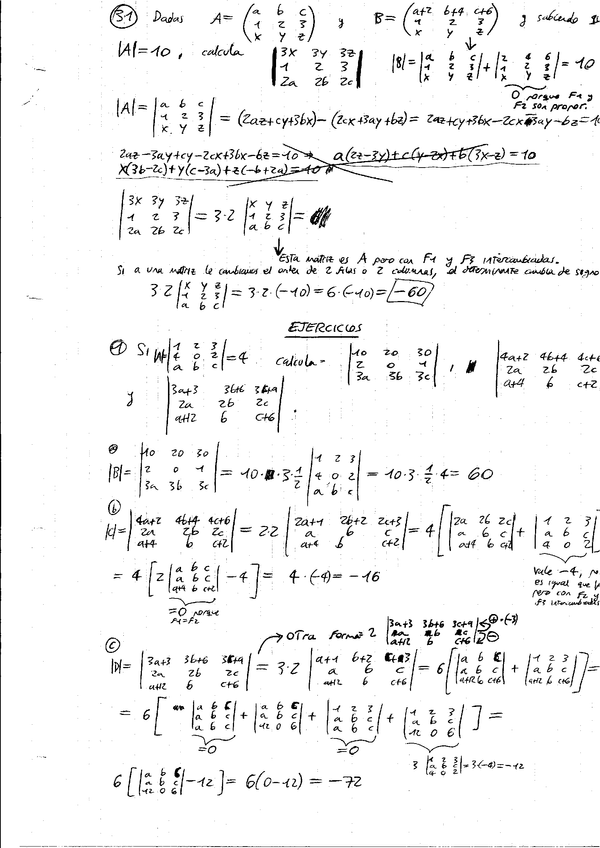 31 Dadas A = (a b c / 1 2 3 / x y z) y B = (a+2 b+4 c+6 / 1 2 3 / x y z) y sabiendo
|A| = 10, calcula |3x 3y 3z / 1 2 3 / 2a 2b 2c| |B| = |a b c / 1 2 3 / x y z| + |2 4 6 / 1 2 3 / x y z| = 10
0 porque F1 y
F2 son propor.
|A| = |a b c / 1 2 3 / x y z| = (2az+cy+3bx) - (2cx+3ay+bz) = 2az+cy+3bx-2cx-3ay-bz=
2az-3ay+cy-2cx+3bx-bz=10 → a(2z-3y)+c(y-2x)+b(3x-z)=10
x(3b-2c)+y(c-3a)+z(-b+2a)=10
|3x 3y 3z / 1 2 3 / 2a 2b 2c| = 3·2 |x y z / 1 2 3 / a b c| =
Esta matriz es A pero con F1 y F3 intercambiadas.
Si a una matriz le cambiamos el orden de 2 filas o 2 columnas, el determinante cambia de signo
3·2 |x y z / 1 2 3 / a b c| = 3·2·(-10) = 6·(-10) = -60
EJERCICIOS
Si |1 2 3 / 4 0 2 / a b c| = 4 calcula |10 20 30 / 2 0 1 / 3a 3b 3c| , |4a+2 4b+4 4c+6 / 2a 2b 2c / a+4 b c+2|
y |3a+3 3b+6 3c+9 / 2a 2b 2c / a+12 b c+6| .
a
|B| = |10 20 30 / 2 0 1 / 3a 3b 3c| = 10·3·1/2 |1 2 3 / 4 0 2 / a b c| = 10·3·1/2·4 = 60
b
|C| = |4a+2 4b+4 4c+6 / 2a 2b 2c / a+4 b c+2| = 2·2 |2a+1 2b+2 2c+3 / a b c / a+4 b c+2| = 4 [|2a 2b 2c / a b c / a+4 b c+2| + |1 2 3 / a b c / 4 0 2|
= 4 [2 |a b c / a b c / a+4 b c+2| - 4] = 4·(-4) = -16
=0 porque
F1=F2
Vale -4,
es igual que
pero con F2 y
F3 intercambiadas
c
Otra forma |3a+3 3b+6 3c+9 / 2a 2b 2c / a+12 b c+6|
|D| = |3a+3 3b+6 3c+9 / 2a 2b 2c / a+12 b c+6| = 3·2 |a+1 b+2 c+3 / a b c / a+12 b c+6| = 6 [|a b c / a b c / a+12 b c+6| + |1 2 3 / a b c / a+12 b c+6|] =
= 6 [|a b c / a b c / a b c| + |a b c / a b c / 12 0 6| + |1 2 3 / a b c / a b c| + |1 2 3 / a b c / 12 0 6|] =
=0 =0 3 |1 2 3 / a b c / 4 0 2| = 3·(-4) = -12
6 [|a b c / a b c / 12 0 6| - 12] = 6(0-12) = -72